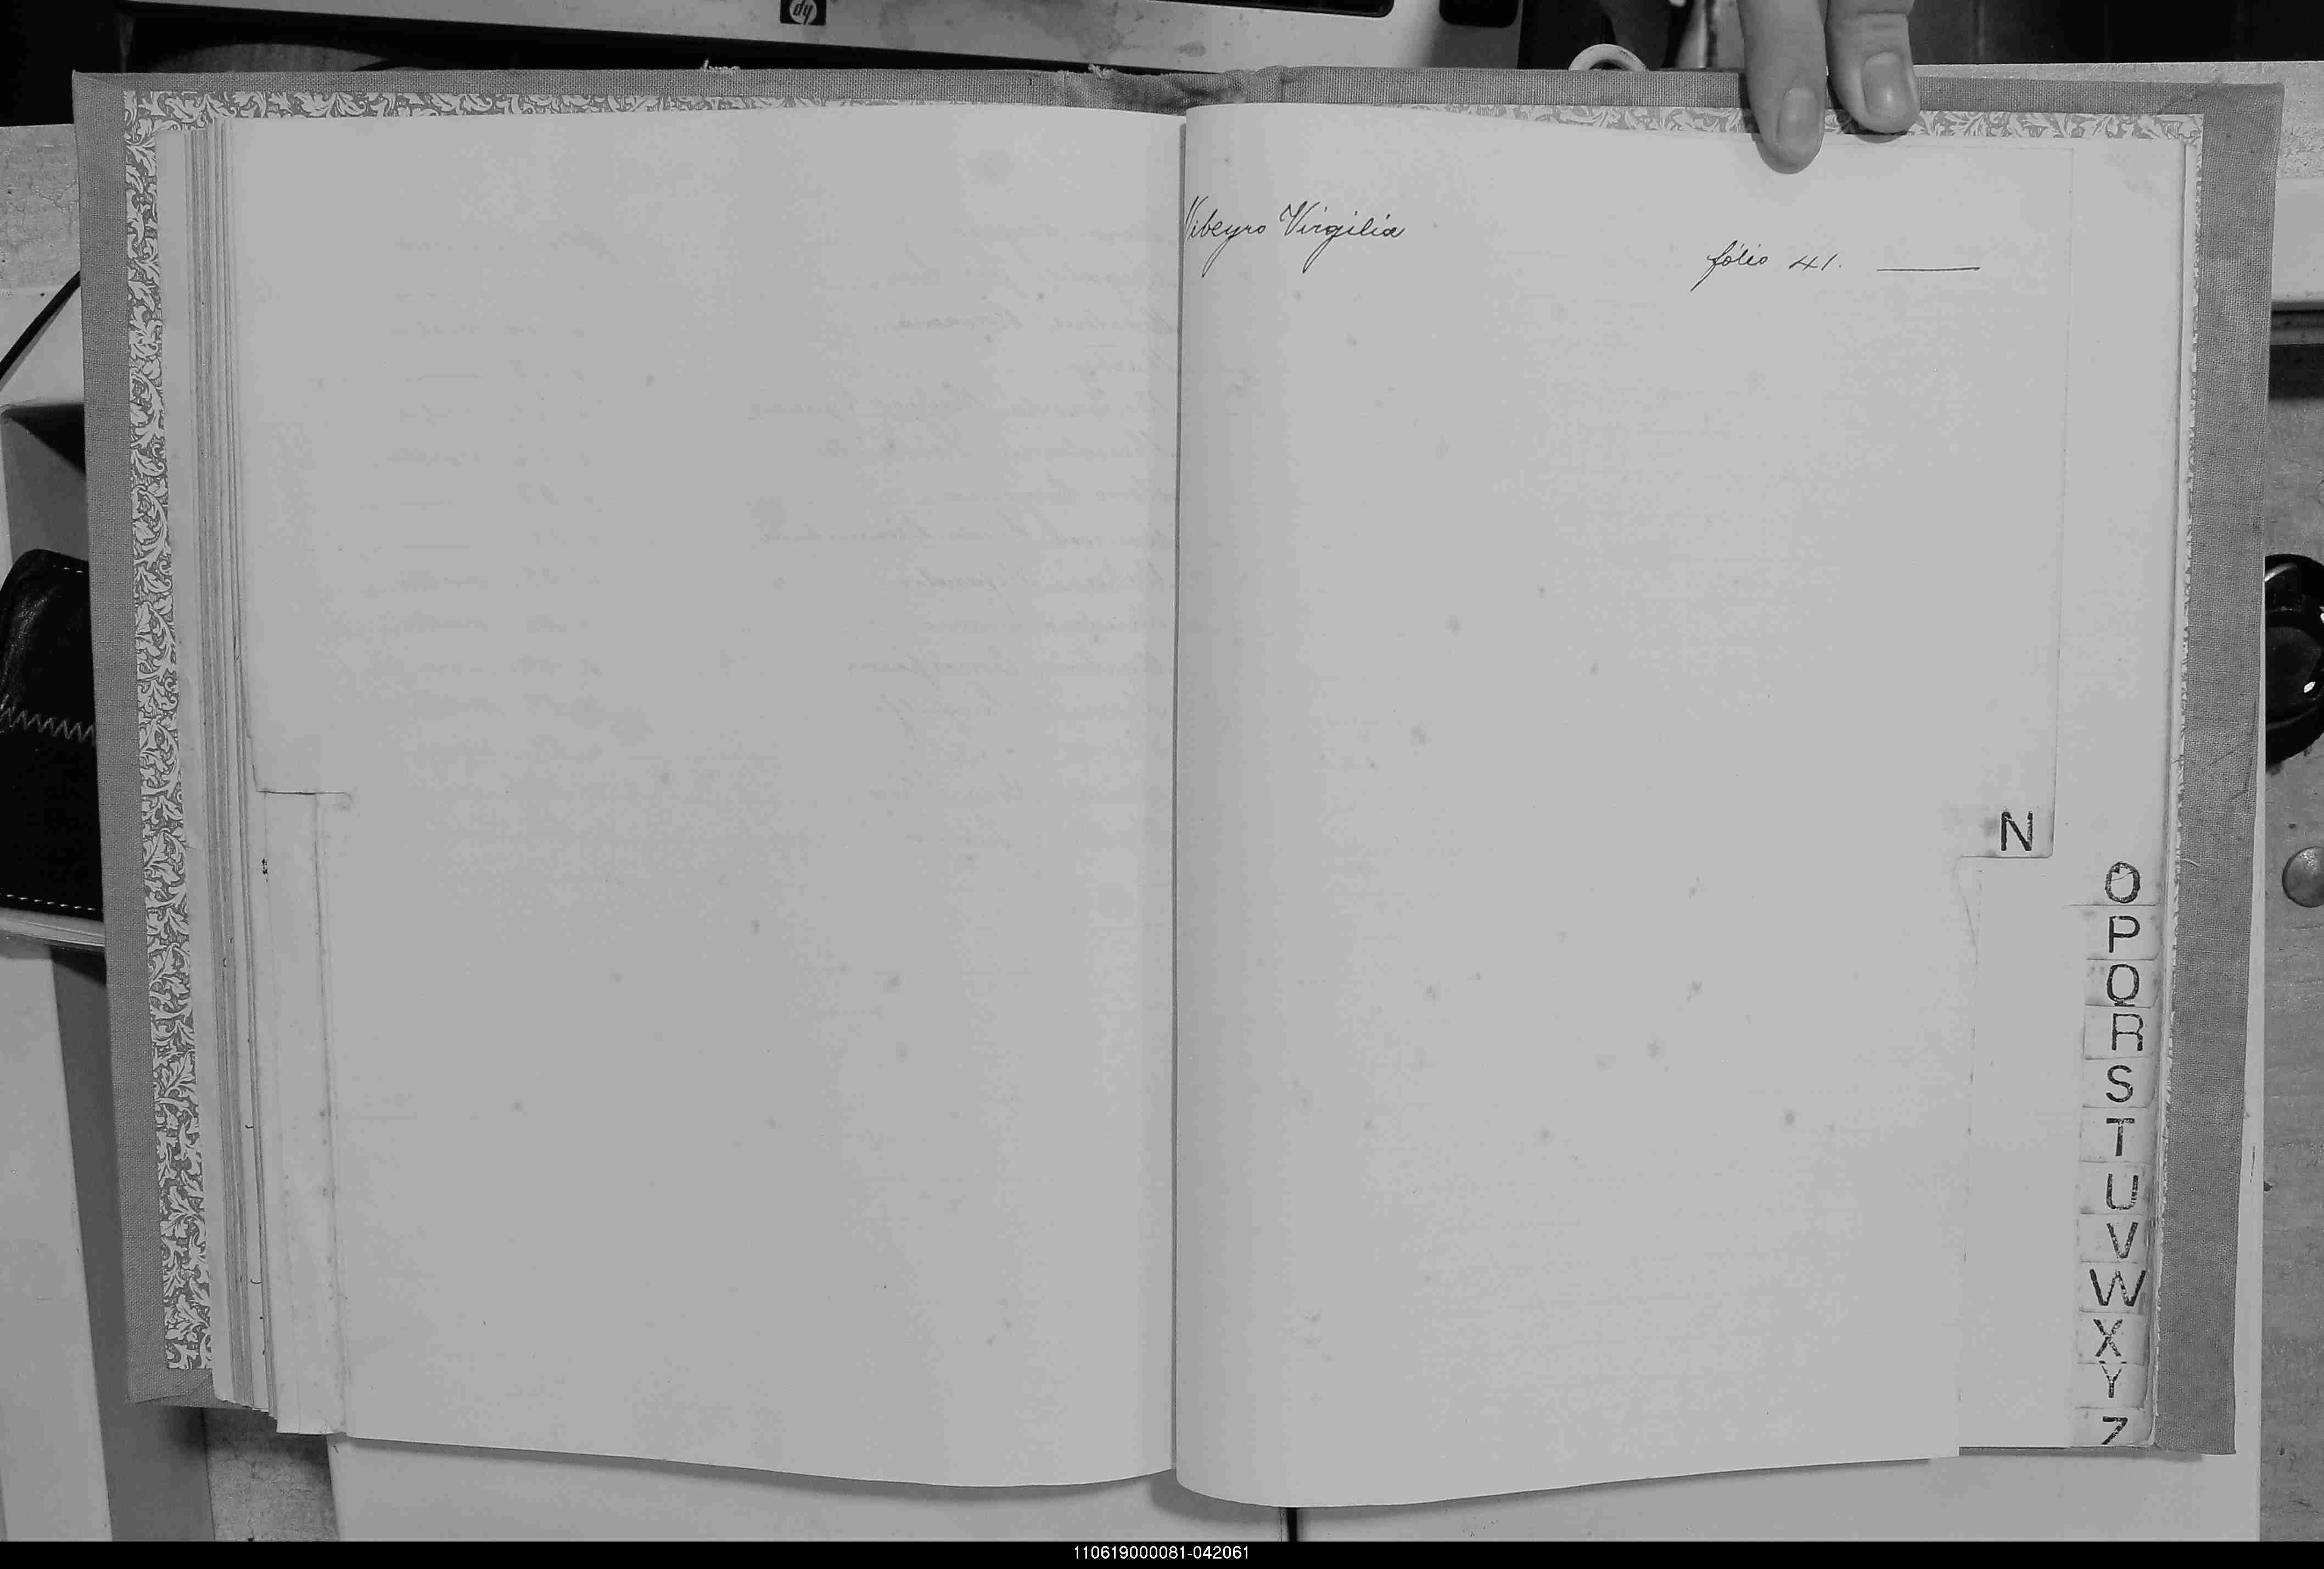 Virgilia
folio 41.
N
O
P
Q
R
S
T
U
V
W
X
Y
Z
110619000081-042061